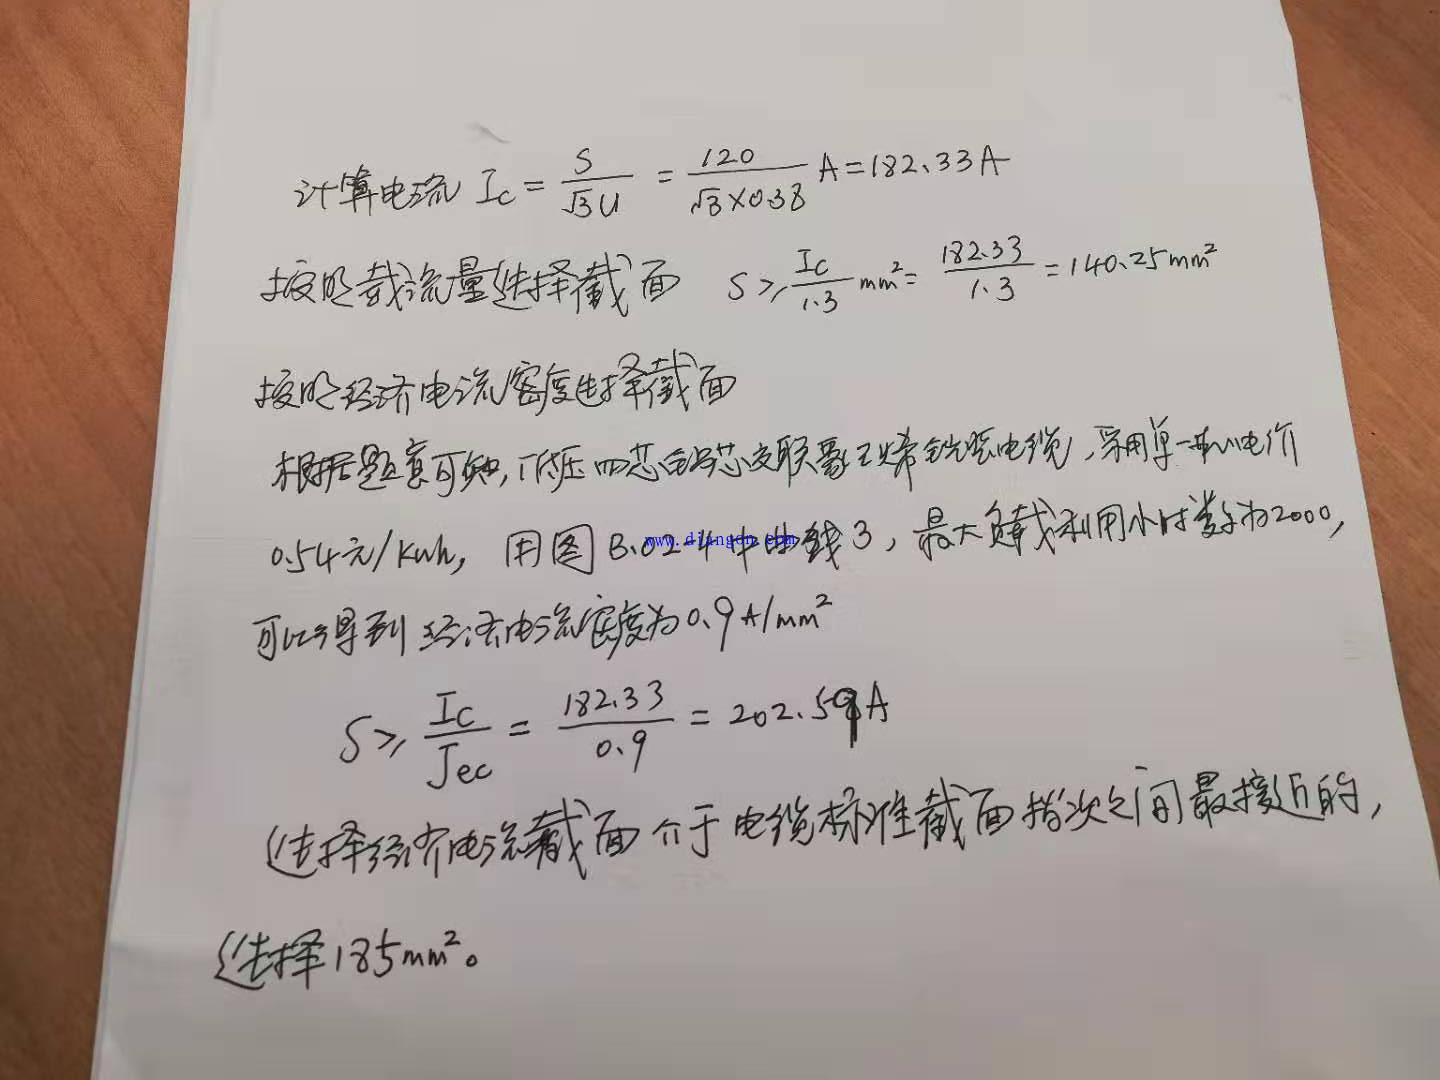 计算电流 Ic = S/√3U = 120/√3×0.38 A = 182.33A
按照载流量选择截面 S ≥ Ic/1.3 mm² = 182.33/1.3 = 140.25mm²
按照经济电流密度选择截面
根据题意可知,低压四芯铝芯交联聚乙烯铠装电缆,采用单一制电价
0.54元/kwh, 用图B.02-4中曲线3, 最大负载利用小时数为2000,
www.diangon.com
可以得到经济电流密度为0.9A/mm²
S ≥ Ic/Jec = 182.33/0.9 = 202.59A
选择经济电流截面介于电缆标准截面档次之间最接近的,
选择185mm²。